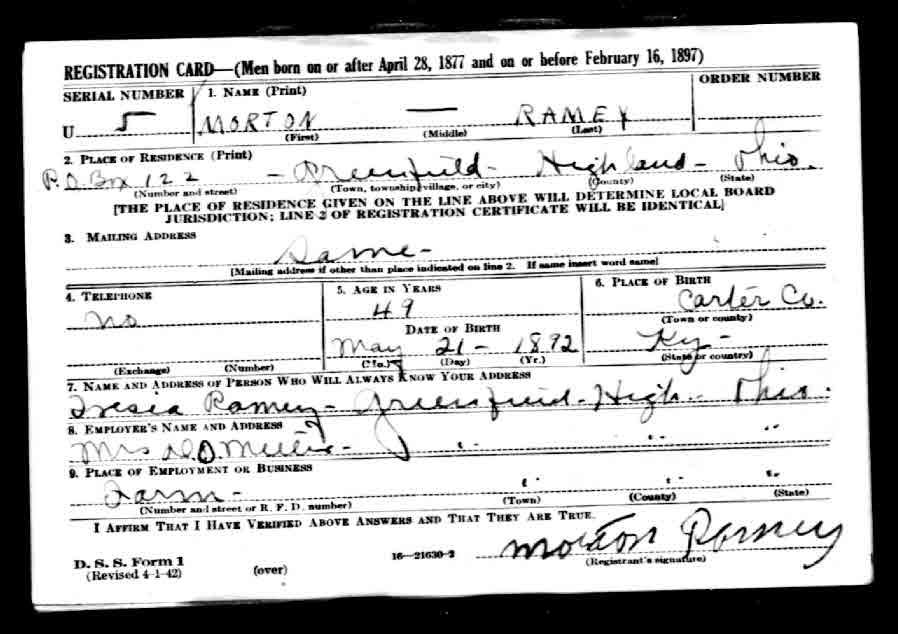 REGISTRATION CARD—(Men born on or after April 28, 1877 and on or before February 16, 1897)
SERIAL NUMBER 1. NAME (Print) ORDER NUMBER
U 5 MORTON — RAMEY
(First) (Middle) (Last)
2. PLACE OF RESIDENCE (Print)
P.O. Box 122 - Greenfield - Highland - Ohio.
(Number and street) (Town, township, village, or city) (County) (State)
[THE PLACE OF RESIDENCE GIVEN ON THE LINE ABOVE WILL DETERMINE LOCAL BOARD
JURISDICTION; LINE 2 OF REGISTRATION CERTIFICATE WILL BE IDENTICAL]
3. MAILING ADDRESS
Same -
[Mailing address if other than place indicated on line 2. If same insert word same]
4. TELEPHONE 5. AGE IN YEARS 6. PLACE OF BIRTH
no 49 Carter Co.
DATE OF BIRTH (Town or county)
May 21 - 1892 Ky -
(Exchange) (Number) (Mo.) (Day) (Yr.) (State or country)
7. NAME AND ADDRESS OF PERSON WHO WILL ALWAYS KNOW YOUR ADDRESS
Ramey - Greenfield - High. - Ohio.
8. EMPLOYER'S NAME AND ADDRESS
Mrs - " " "
9. PLACE OF EMPLOYMENT OR BUSINESS
Farm - " " "
(Number and street or R. F. D. number) (Town) (County) (State)
I AFFIRM THAT I HAVE VERIFIED ABOVE ANSWERS AND THAT THEY ARE TRUE.
D. S. S. Form 1 16—21630-2 Morton Ramey
(Revised 4-1-42) (over) (Registrant's signature)